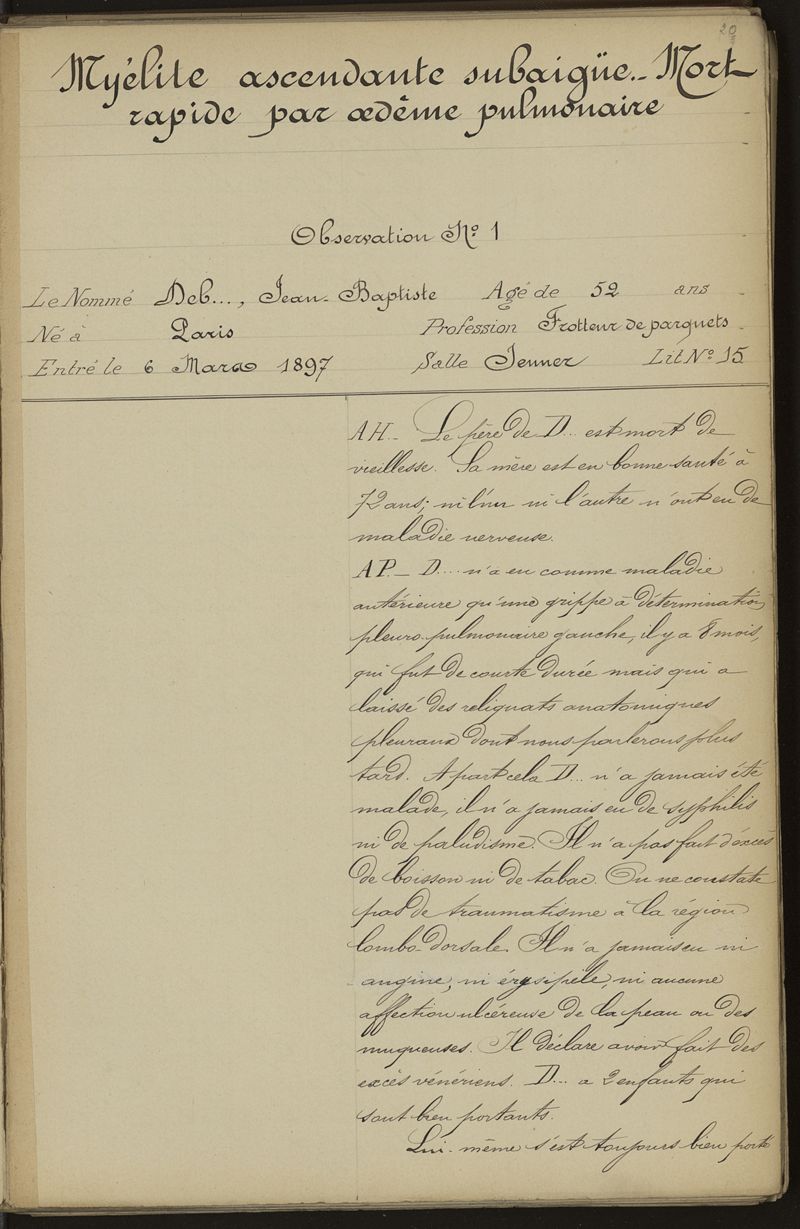 20
Myélite ascendante subaigüe.- Mort
rapide par œdême pulmonaire
Observation No 1
Le Nommé Deb..., Jean-Baptiste Agé de 52 ans
Né à Paris Profession Frotteur de parquets
Entré le 6 Mars 1897 Salle Jenner Lit No 15
AH_ Le père de D... est mort de
vieillesse. Sa mère est en bonne santé à
72 ans; ni l'un ni l'autre n'ont eu de
maladie nerveuse.
AP._ D.... n'a eu comme maladie
antérieure qu'une grippe à détermination
pleuro-pulmonaire gauche, il y a 8 mois,
qui fut de courte durée mais qui a
laissé des reliquats anatomiques
pleuraux dont nous parlerons plus
tard. A part cela D... n'a jamais été
malade, il n'a jamais eu de syphilis
ni de paludisme. Il n'a pas fait d'excès
de boisson ni de tabac. On ne constate
pas de traumatisme à la région
lombo-dorsale. Il n'a jamais eu ni
angine, ni érysipèle, ni aucune
affection ulcéreuse de la peau ou des
muqueuses. Il déclare avoir fait des
excès vénériens. D... a 2 enfants qui
sont bien portants.
Lui-même s'est toujours bien porté